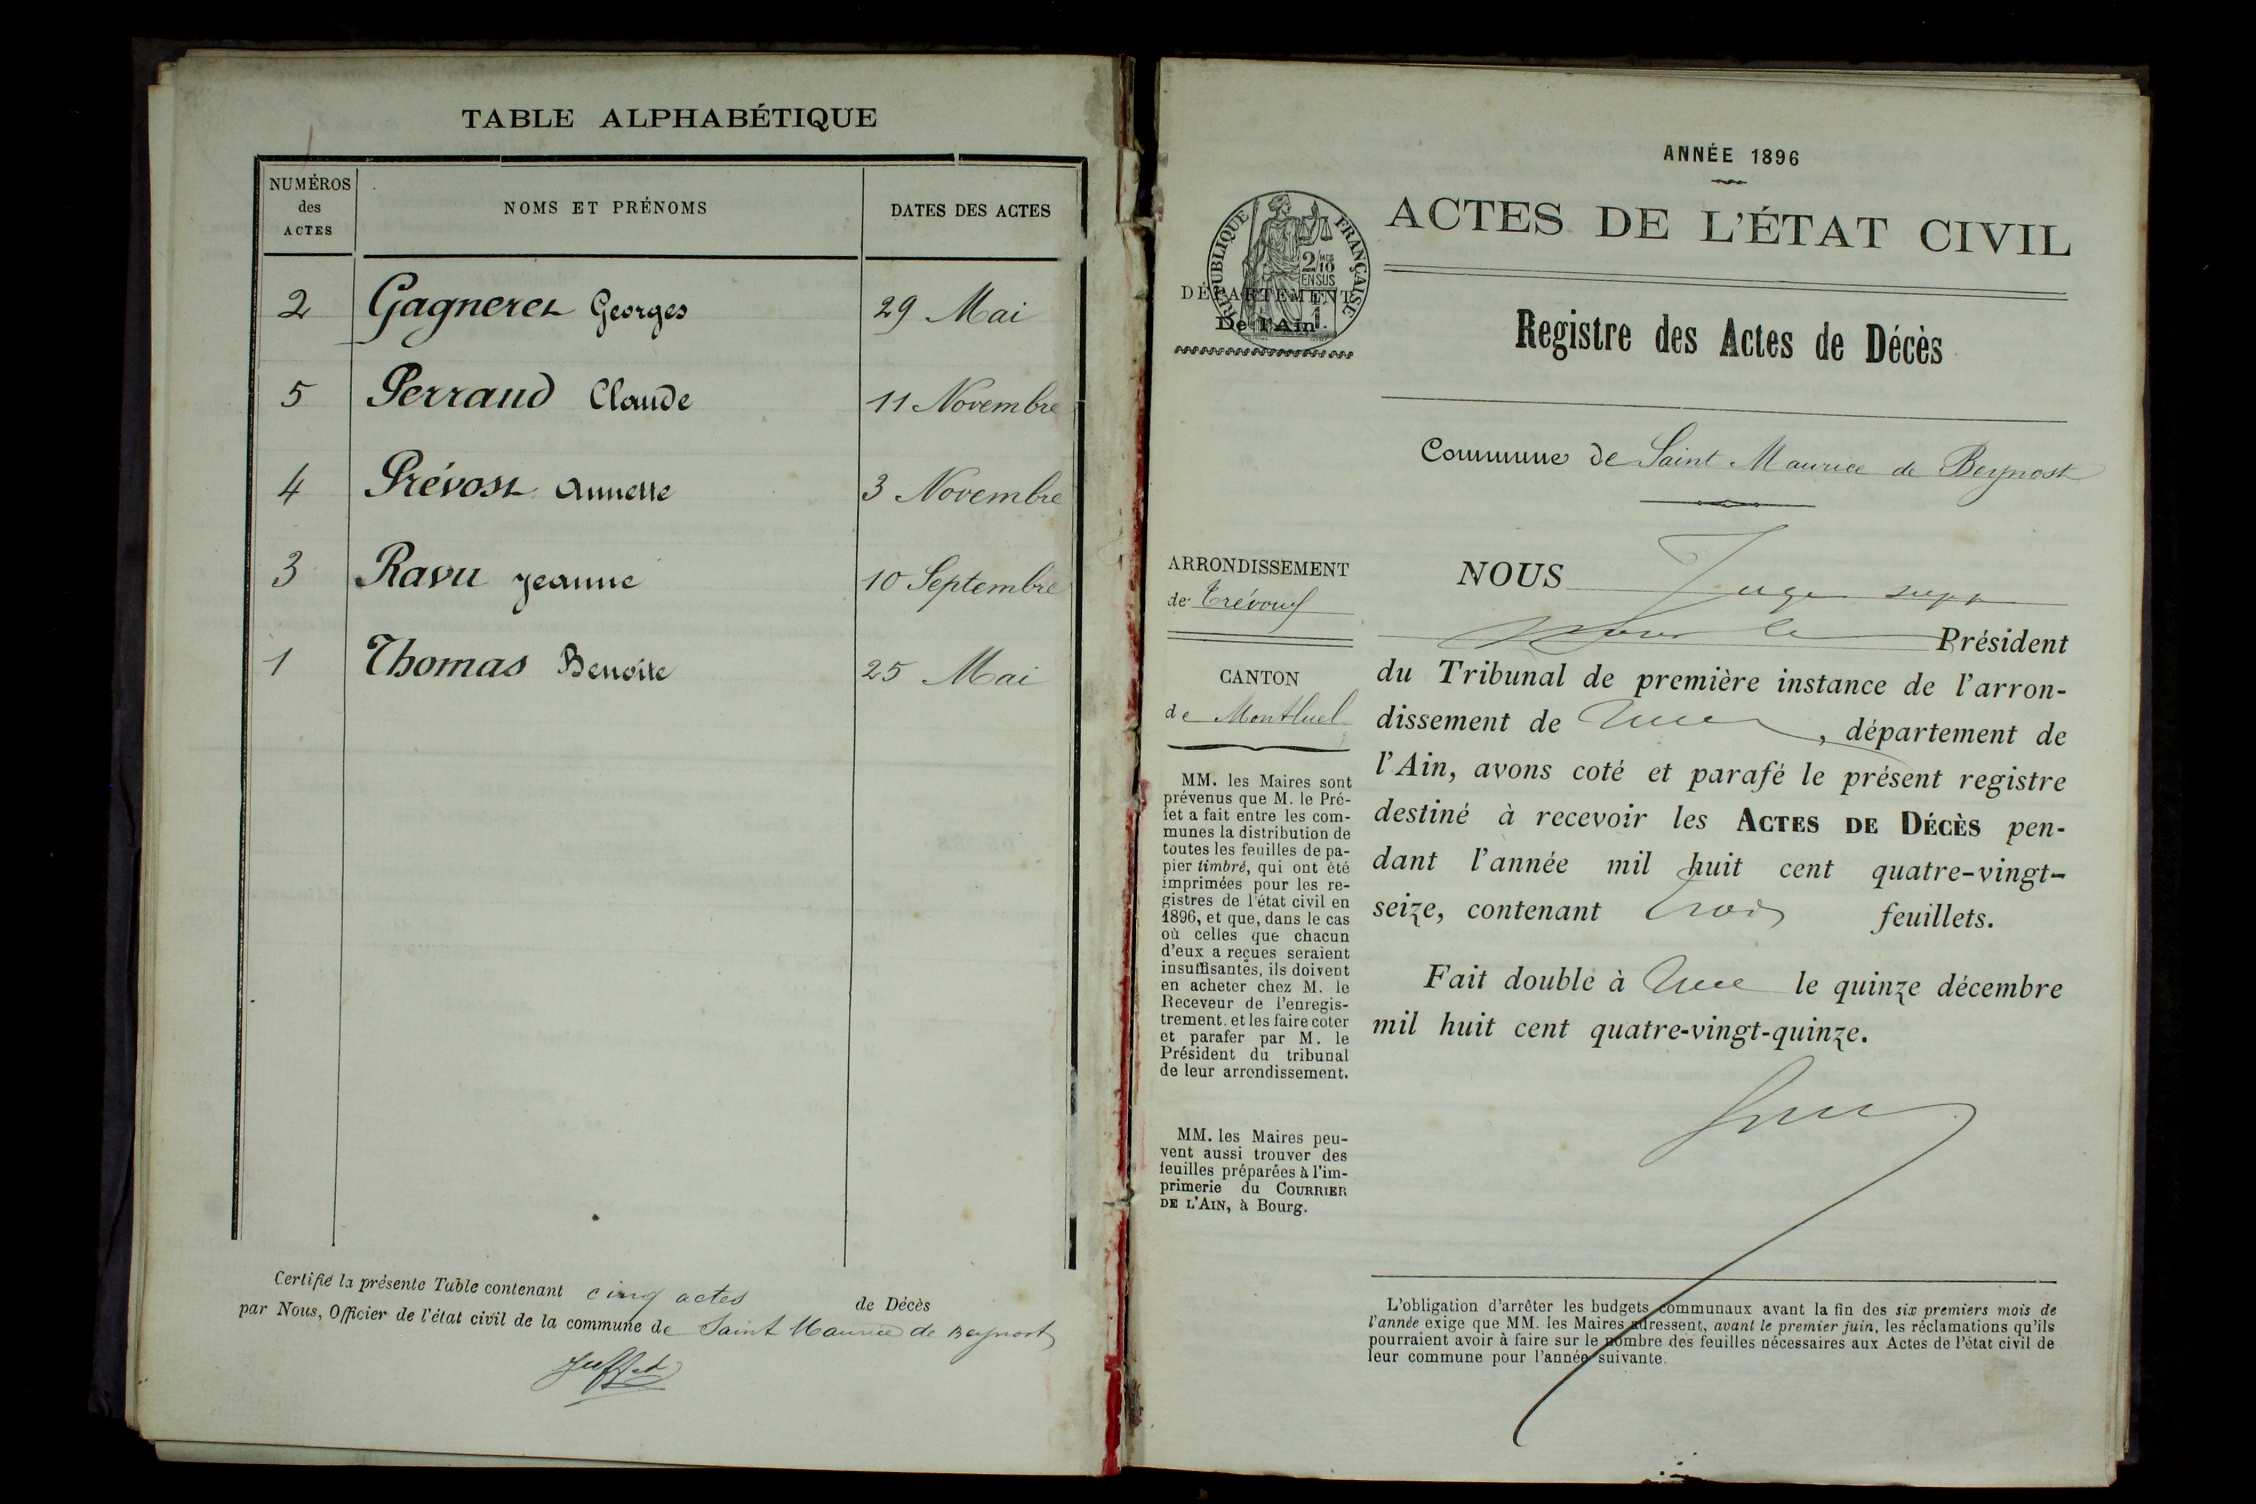 TABLE ALPHABÉTIQUE
NUMÉROS
des
ACTES
NOMS ET PRÉNOMS
DATES DES ACTES
2 Gagneret Georges 29 Mai
5 Perraud Claude 11 Novembre
4 Prévost Annette 3 Novembre
3 Ravu Jeanne 10 Septembre
1 Thomas Benoite 25 Mai
Certifié la présente Table contenant cinq actes de Décès
par Nous, Officier de l'état civil de la commune de Saint Maurice de Beynost
ANNÉE 1896
ACTES DE L'ÉTAT CIVIL
RÉPUBLIQUE FRANÇAISE
2/10
MES
EN SUS
DÉPARTEMENT
De l'Ain
Registre des Actes de Décès
Commune de Saint Maurice de Beynost
ARRONDISSEMENT
de Trévoux
CANTON
de Montluel
MM. les Maires sont
prévenus que M. le Pré-
fet a fait entre les com-
munes la distribution de
toutes les feuilles de pa-
pier timbré, qui ont été
imprimées pour les re-
gistres de l'état civil en
1896, et que, dans le cas
où celles que chacun
d'eux a reçues seraient
insuffisantes, ils doivent
en acheter chez M. le
Receveur de l'enregis-
trement. et les faire coter
et parafer par M. le
Président du tribunal
de leur arrondissement.
MM. les Maires peu-
vent aussi trouver des
feuilles préparées à l'im-
primerie du COURRIER
DE L'AIN, à Bourg.
NOUS Juge supp
pour le Président
du Tribunal de première instance de l'arron-
dissement de , département de
l'Ain, avons coté et parafé le présent registre
destiné à recevoir les ACTES DE DÉCÈS pen-
dant l'année mil huit cent quatre-vingt-
seize, contenant trois feuillets.
Fait double à le quinze décembre
mil huit cent quatre-vingt-quinze.
L'obligation d'arrêter les budgets communaux avant la fin des six premiers mois de
l'année exige que MM. les Maires adressent, avant le premier juin, les réclamations qu'ils
pourraient avoir à faire sur le nombre des feuilles nécessaires aux Actes de l'état civil de
leur commune pour l'année suivante.